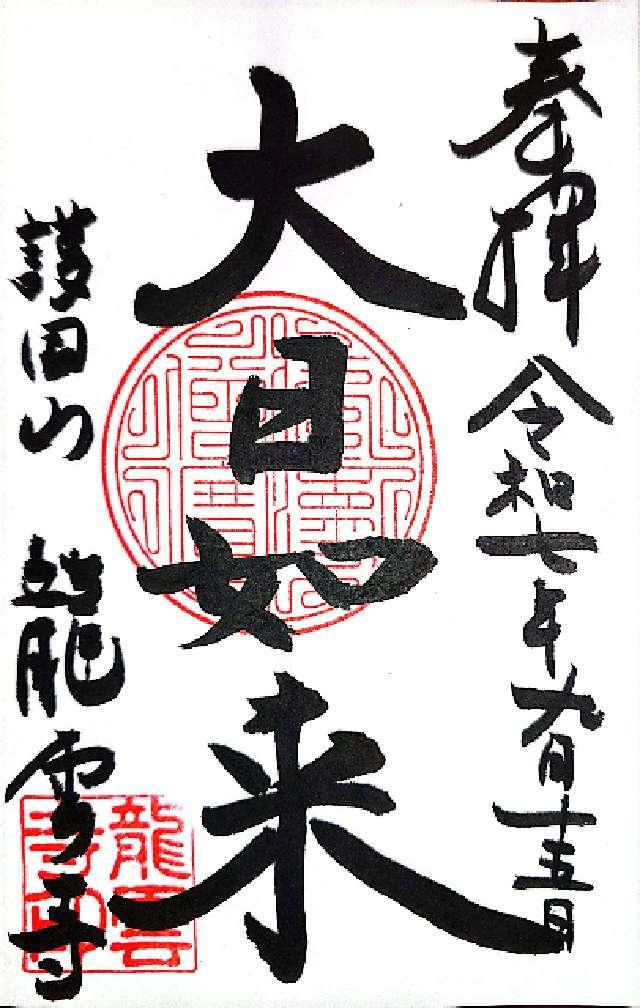 奉拝 令和七年九月十五日
大日如来
護国山 龍雲寺
龍雲寺印